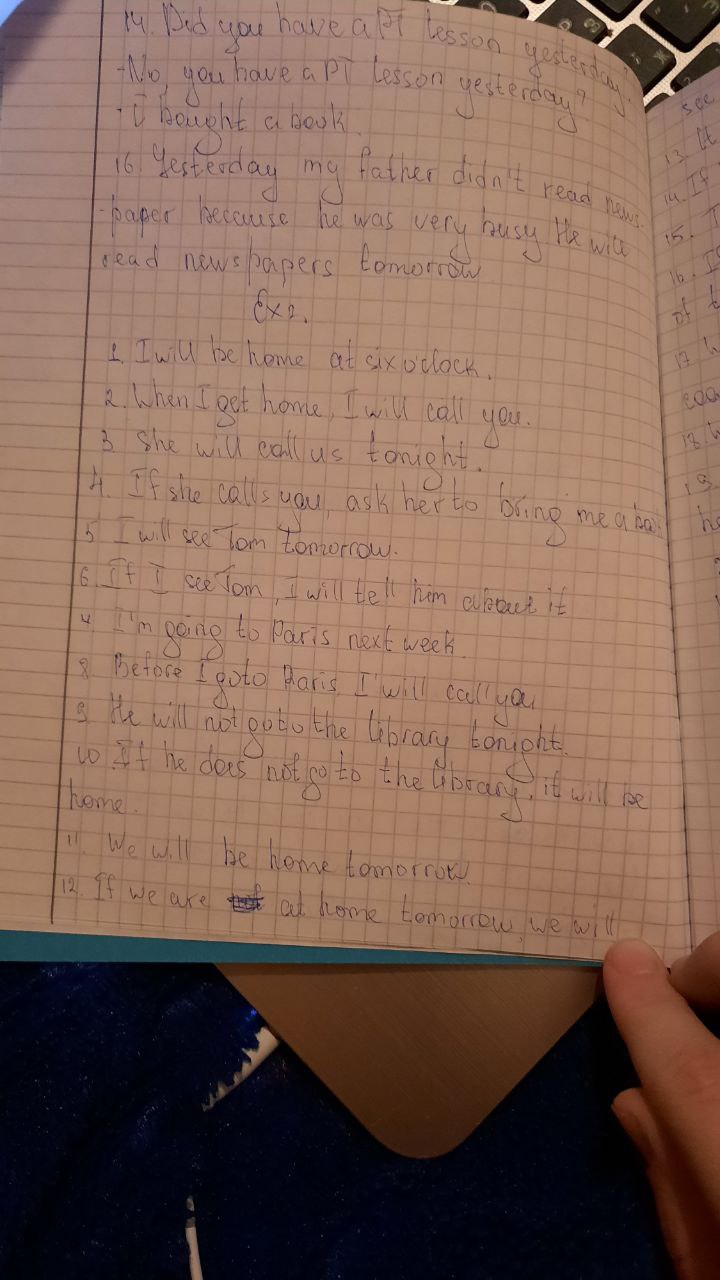 14. Did you have a PT lesson yesterday?
-No, you have a PT lesson yesterday?
- I bought a book.
16. Yesterday my father didn't read news-
-paper because he was very busy He will
read newspapers tomorrow
Ex 2.
1. I will be home at six o'clock.
2. When I get home, I will call you.
3 She will call us tonight.
4. If she calls you, ask her to bring me a
5 I will see Tom tomorrow.
6. If I see Tom, I will tell him about it
4 I'm going to Paris next week.
8 Before I go to Paris, I will call you
9 He will not go to the library tonight.
10 If he does not go to the library, it will be
home.
11. We will be home tomorrow.
12. If we are at home tomorrow, we will
see
13. It
14. If
15.
16.
of
17
18.
19.
he